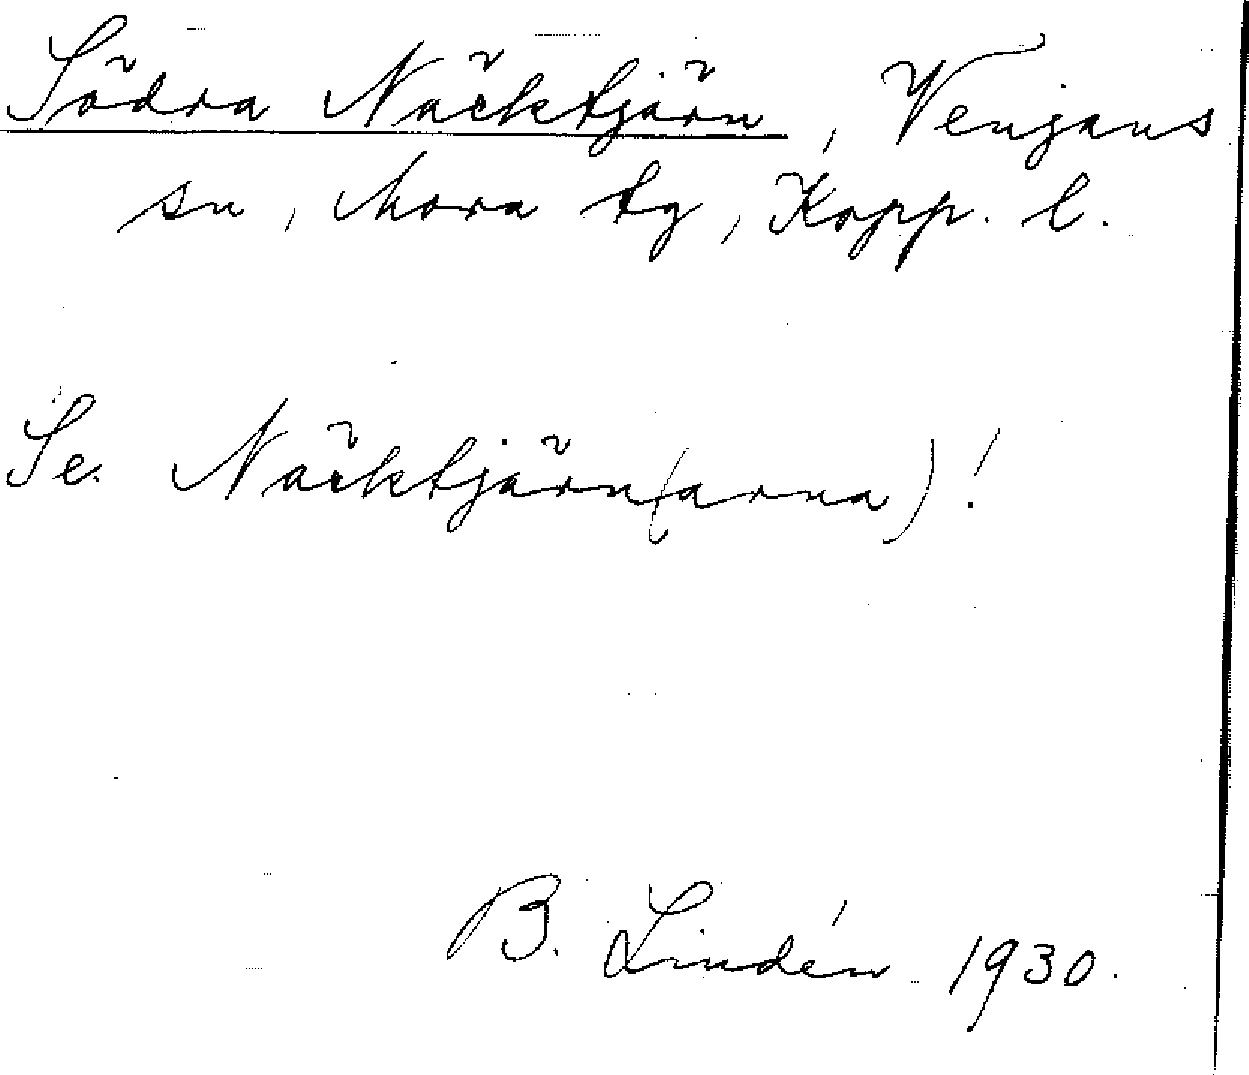 Södra Näcktjärn, Venjans
sn, Mora tg, Kopp. l.
Se Näcktjärn(arna)!
B. Lindén 1930.